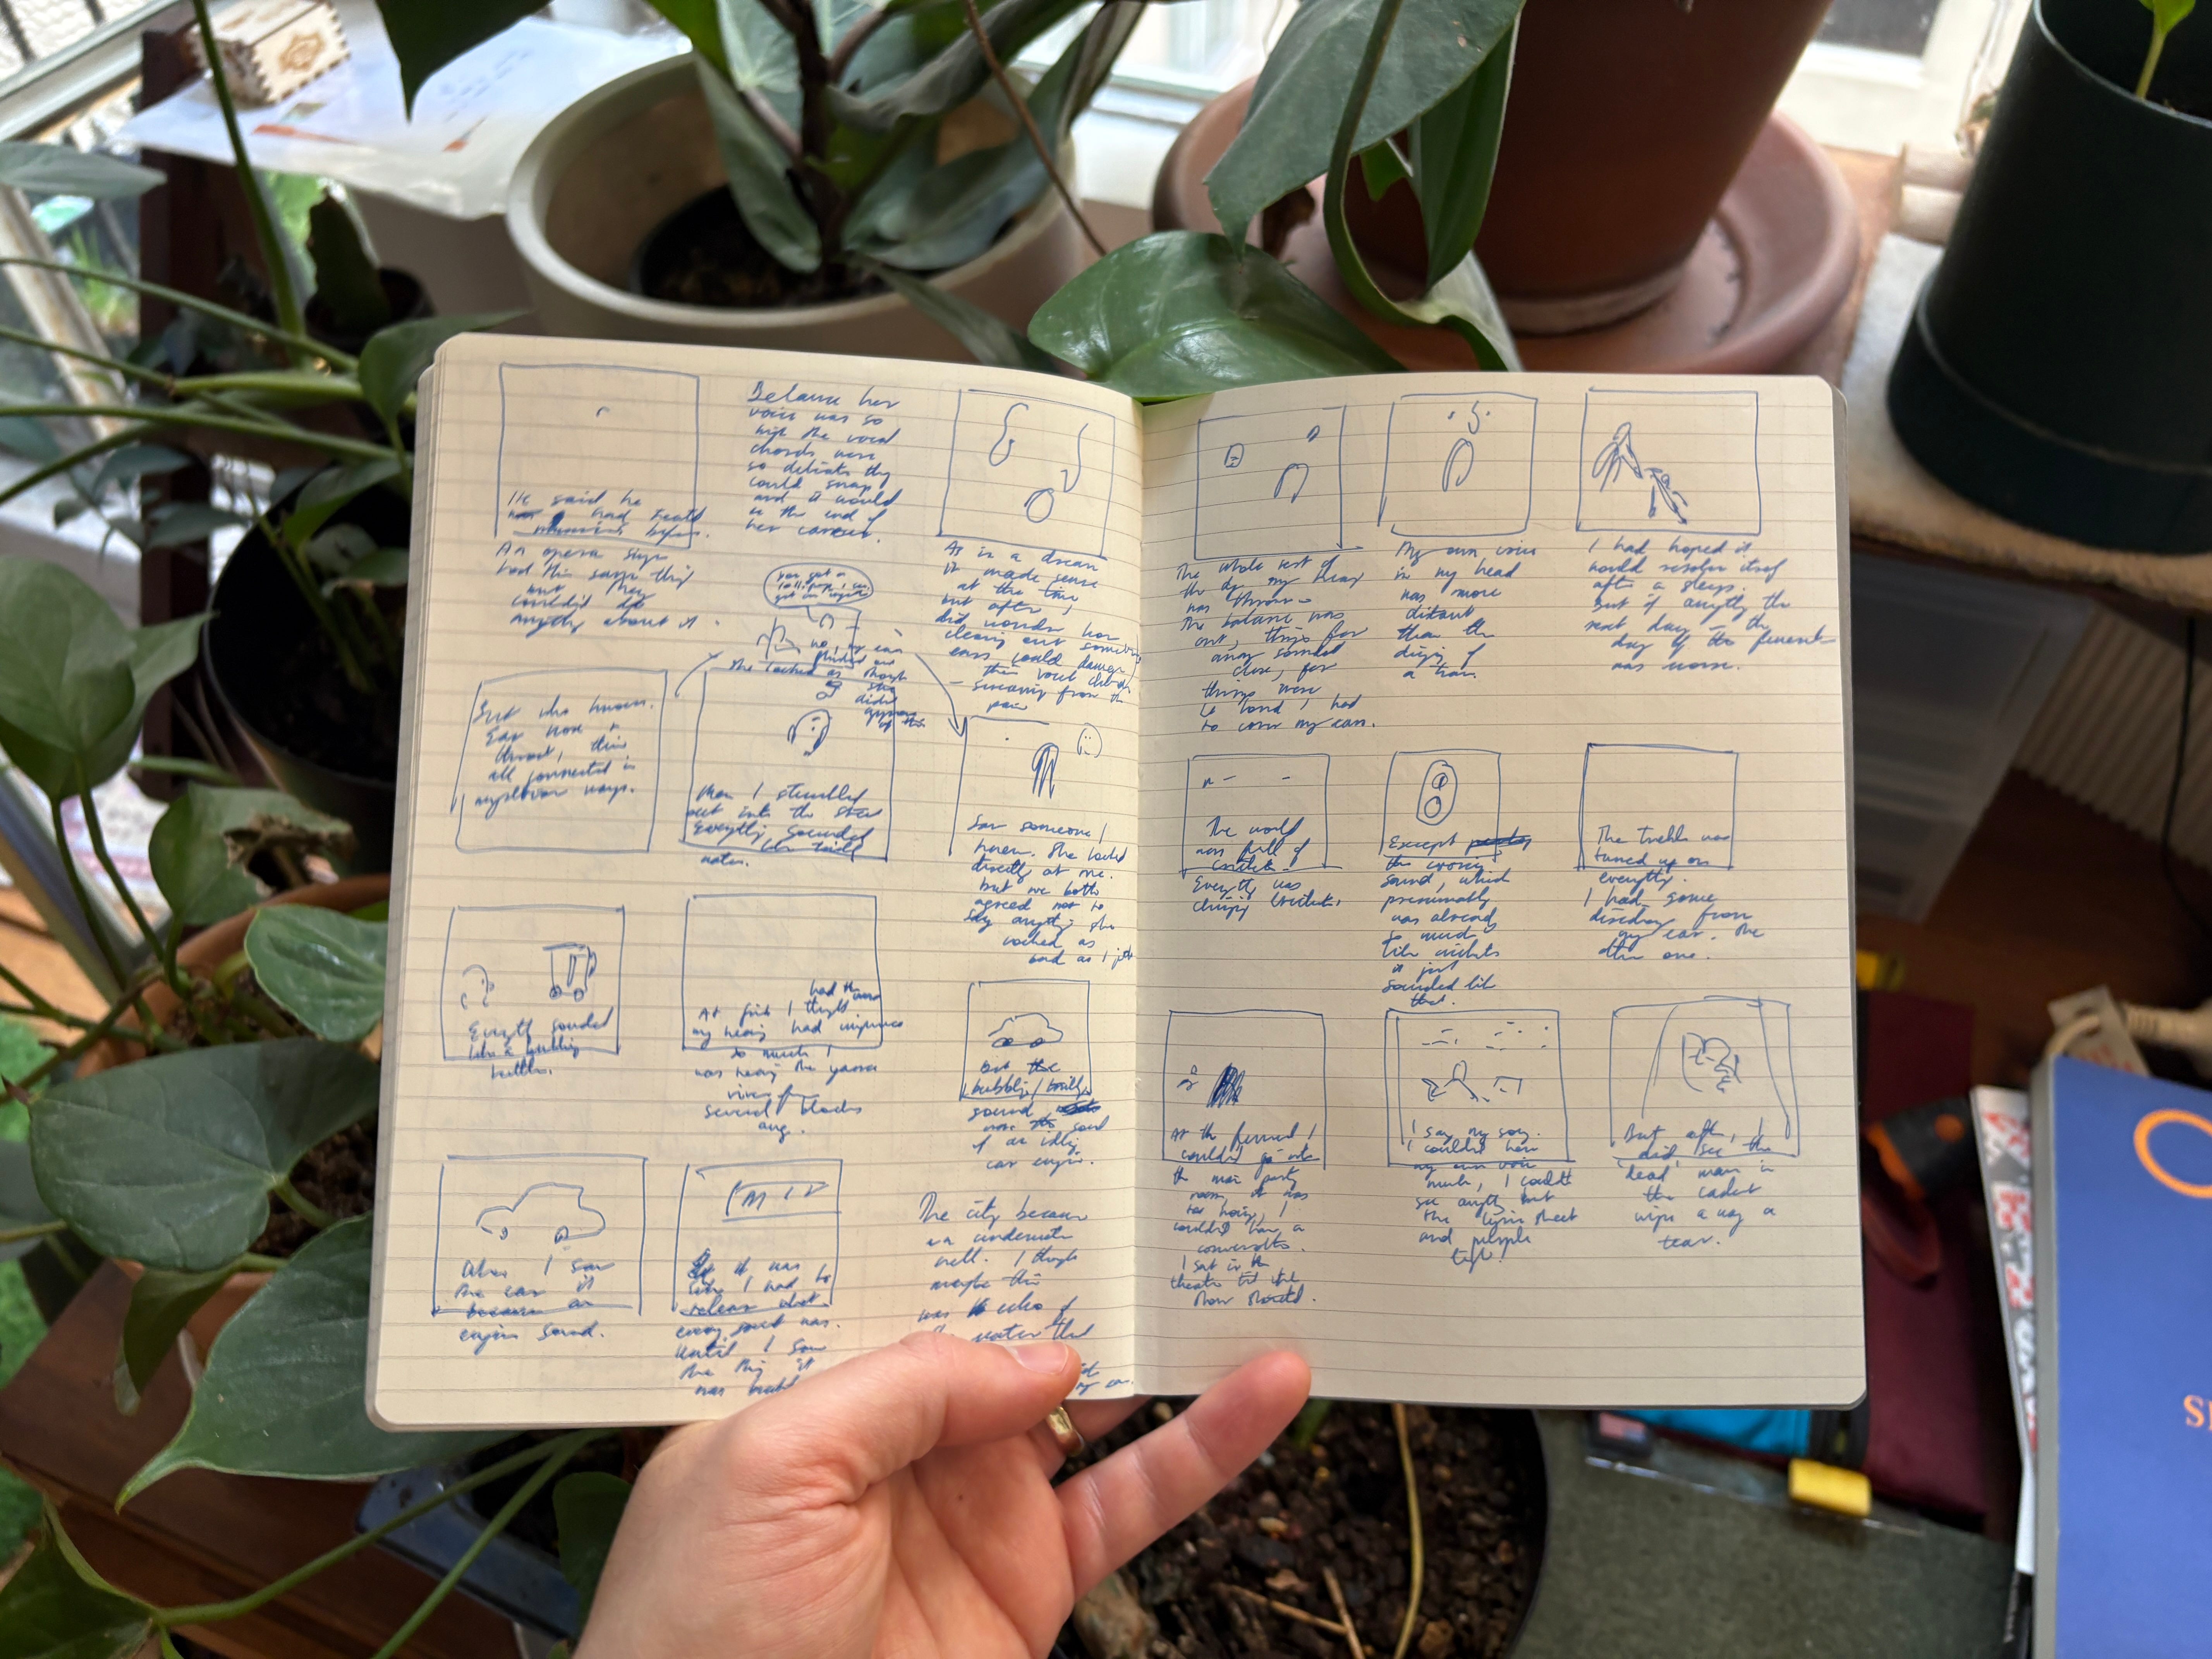 He said he
had treated
musicians before.
An opera singer
had this same thing
but they
couldn't do
anything about it.
Because her
voice was so
high the vocal
chords were
so delicate they
could snap
and it would
be the end of
her career.
As in a dream
it made sense
at the time
but after, I
did wonder how
cleaning out someone's
ears could damage
their vocal chords
- screaming from the
pain
you get a
lollipop,
no, my ear
She looked as though
she
didn't
But who knows.
Ear nose +
throat, they're
all connected in
mysterious ways.
When I stumbled
out into the street
Everything sounded
like
water.
Saw someone I
knew. She looked
directly at me.
but we both
agreed not to
say anything she
looked as
bad as I felt
Everything sounded
like a bubbling
kettle.
At first I thought
my hearing had improved
so much I
was hearing the yarra
river from
several blocks
away.
but the
bubbling / boiling
sound
was the sound
of an idling
car engine.
When I saw
the car it
became an
engine sound.
it was
like I had to
relearn what
every sound was.
Until I saw
the thing it
was
The city became
an underwater
well. I thought
maybe this
was echo of
the water that
my ear.
The whole rest of
the day my hearing
was thrown
The balance was
out, things far
away sounded
close, far
things were
so loud I had
to cover my ears.
My own voice
in my head
was more
distant
than the
dinging of
a tram.
I had hoped it
would resolve itself
after a sleep.
But if anything the
next day - the
day of the funeral
was worse.
The world
was full of
crickets.
Everything was
chirping crickets.
Except
the crossing
sound, which
presumably
was already
so much
like crickets
it just
sounded like
that.
The treble was
turned up on
everything.
I had some
discharge from
my ear. The
other one.
At the funeral I
couldn't go into
the main party
room, it was
too noisy, I
couldn't have a
conversation.
I sat in the
theatre til the
show started.
I sang my song.
I couldn't hear
my own voice
much, I couldn't
see anything but
the lyric sheet
and purple
light!
But after, I
did see the
'dead' man in
the casket
wipe away a
tear.